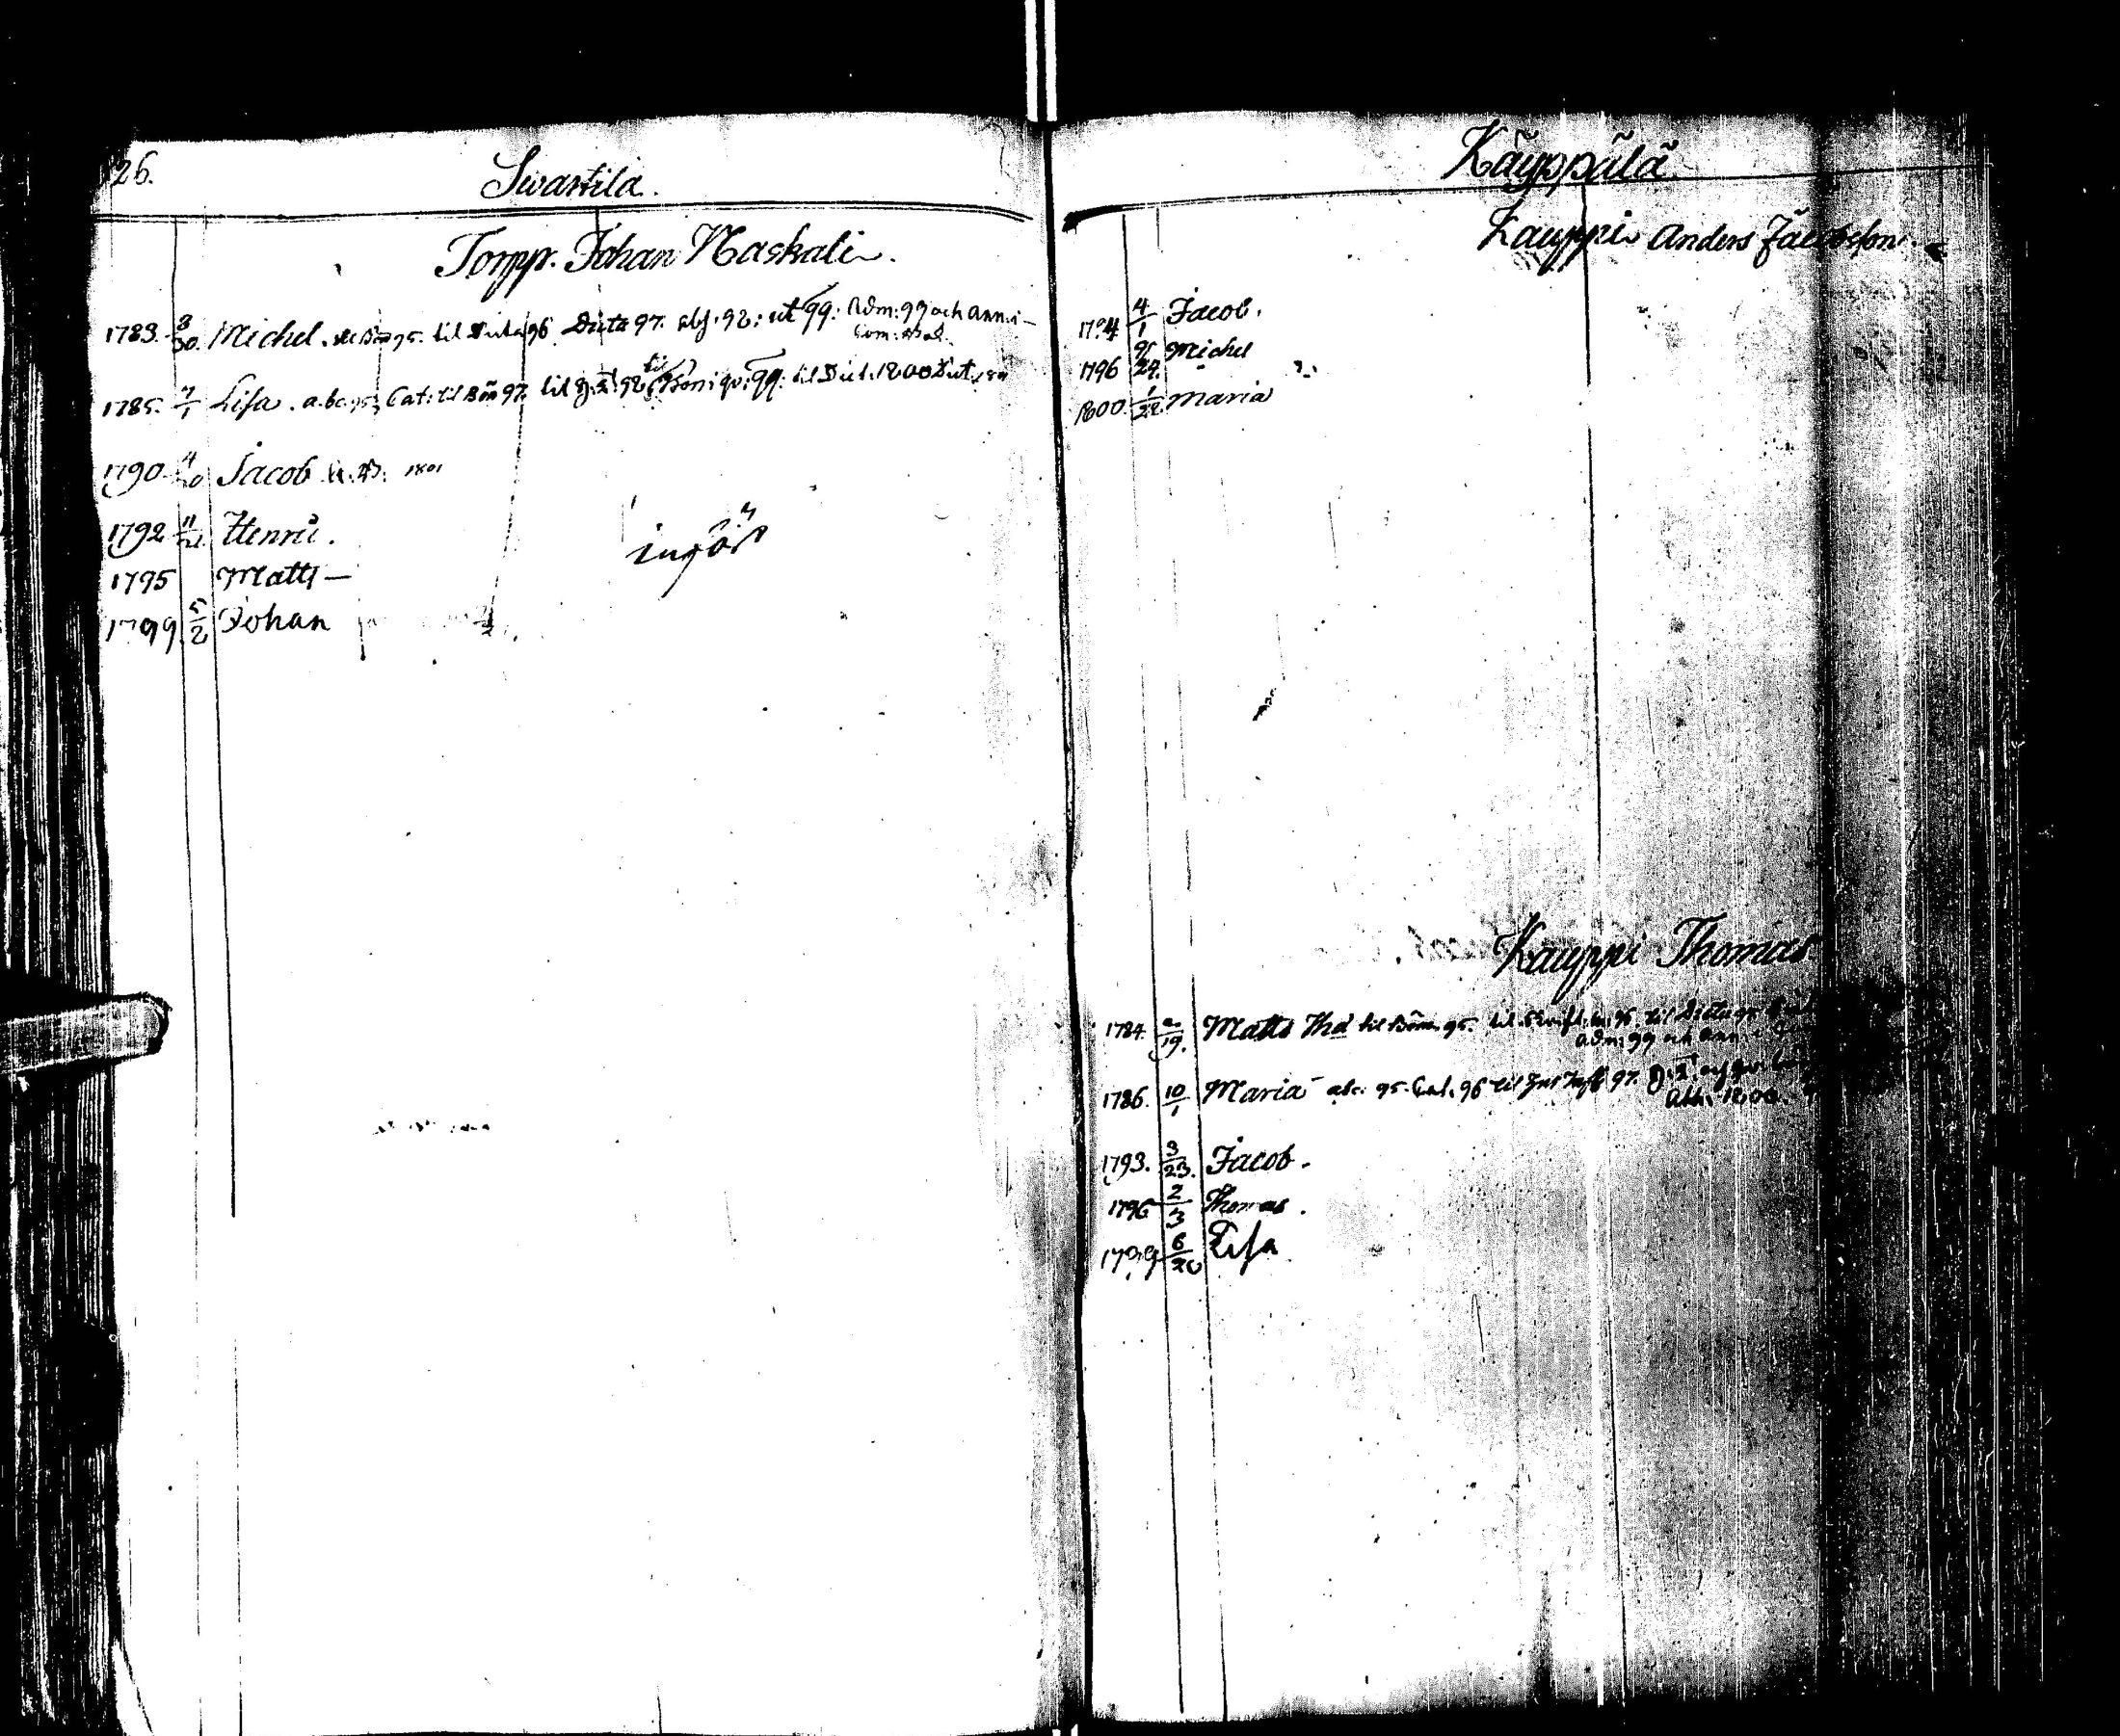 26.
Swartila.
Torpp. Johan Naskali.
1783. 3/30. Michel. til Bön 95. til Duta 96 Duta 97. abs. 98: ut 99: Adm: 99 och ann: i
Com:
1785. 7/1 Lisa. a.b.c. 95, Cat: til Bön 97. til 98 til Bön: qv: 99: til Dut. 1800 Dut.
1790. Jacob 1801
1792 11/21 Henric.
infört
1795 Matts —
1799 5/2 Johan
Käyppälä
Kauppi Anders Jacobsson.
1794 4/1 Jacob.
1796 9/29. Michel
1800. 1/22. Maria
Kauppi Thomas
1784. 2/19. Matts Tho til Bön. 95. til 96. til
Adm: 99 och ann:
1786. 10/1 Maria abc. 95. Cat. 96 til 97.
Ath. 1800.
1793. 3/23. Jacob.
1796 2/3 Thomas.
1799 6/20 Lisa